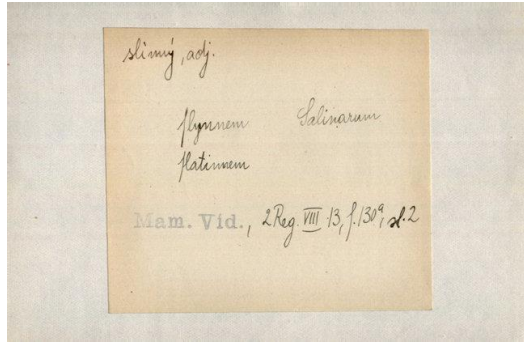 slinný, adj.
slynnem Salinarum
slatinnem
Mam. Vid., 2 Reg. VIII 13, f. 130a, sl. 2